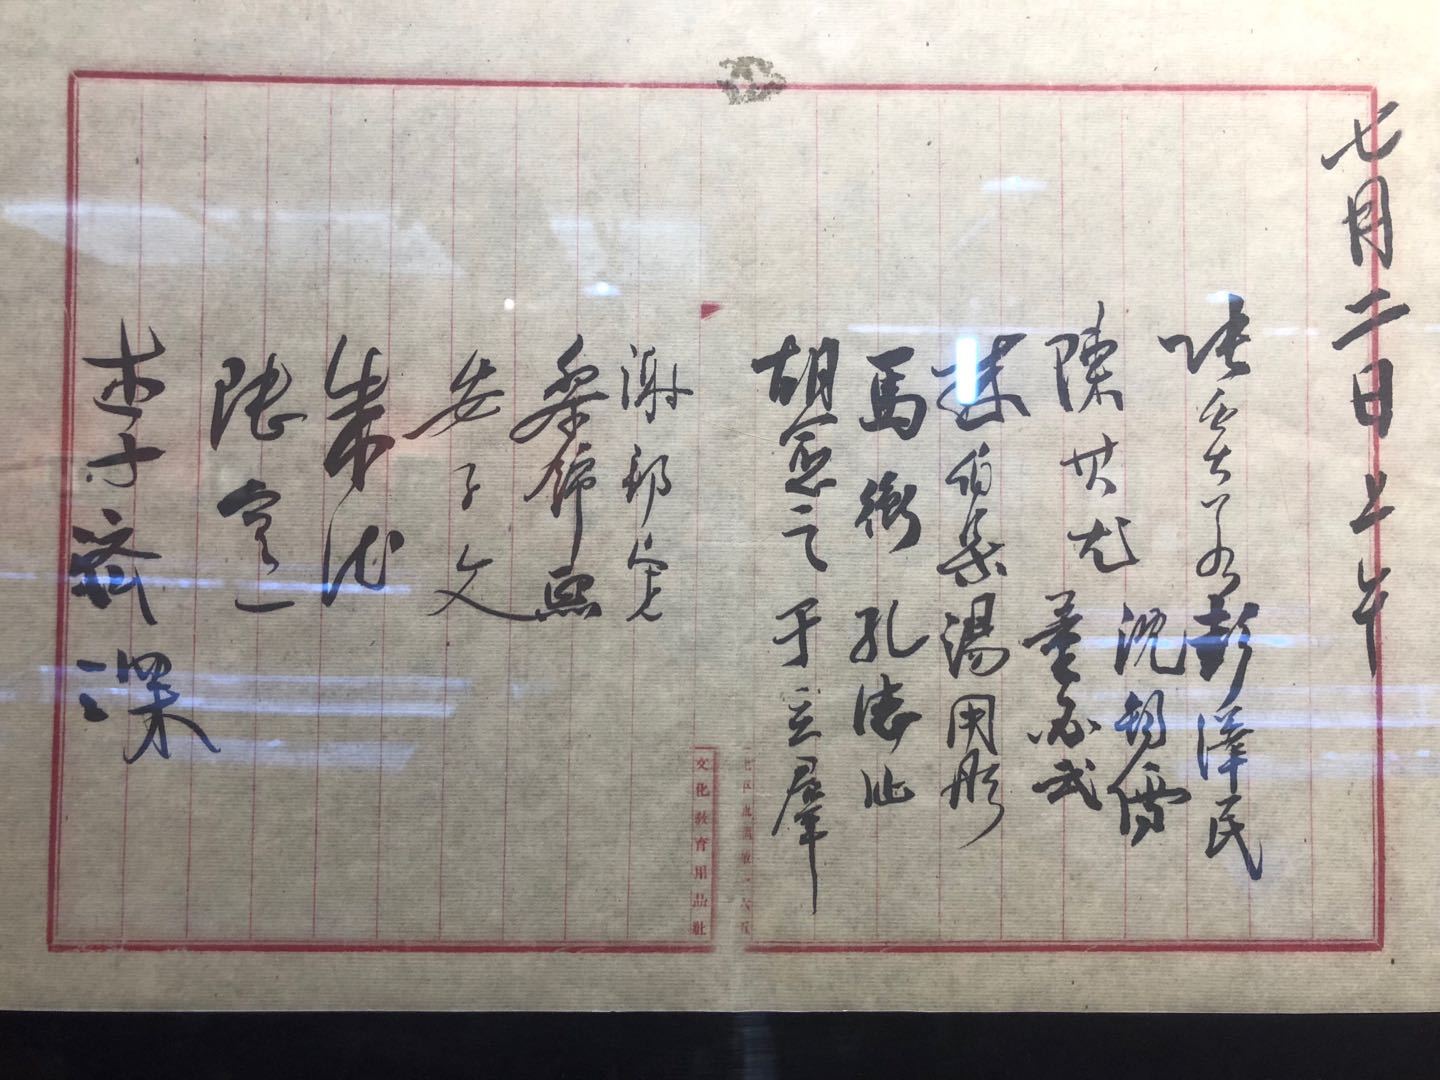 七月二日上午
張奚若 彭澤民
沈鈞儒
陳其尤 董必武
林伯渠 湯用彤
馬衡 孔德沚
胡愈之 于立羣
謝邦定
黎錦熙
安子文
朱德
陸定一
李濟深
文化教育用品社